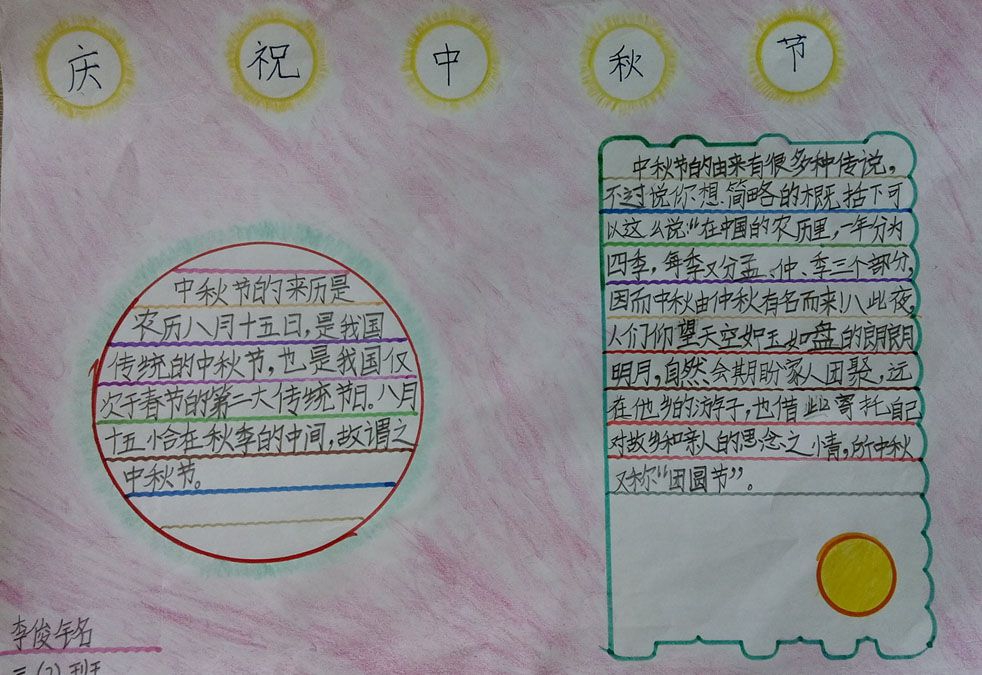 庆祝中秋节
中秋节的来历是
农历八月十五日,是我国
传统的中秋节,也是我国仅
次于春节的第二大传统节日。八月
十五恰在秋季的中间,故谓之
中秋节。
中秋节的由来有很多种传说,
不过说你想简略的概括下可
以这么说:“在中国的农历里,一年分为
四季,每季又分孟、仲、季三个部分,
因而中秋由仲秋有名而来!八此夜,
人们仰望天空如玉如盘的朗朗
明月,自然会期盼家人团聚,远
在他乡的游子,也借此寄托自己
对故乡和亲人的思念之情,所中秋
又称“团圆节”。
李俊
三(2)班